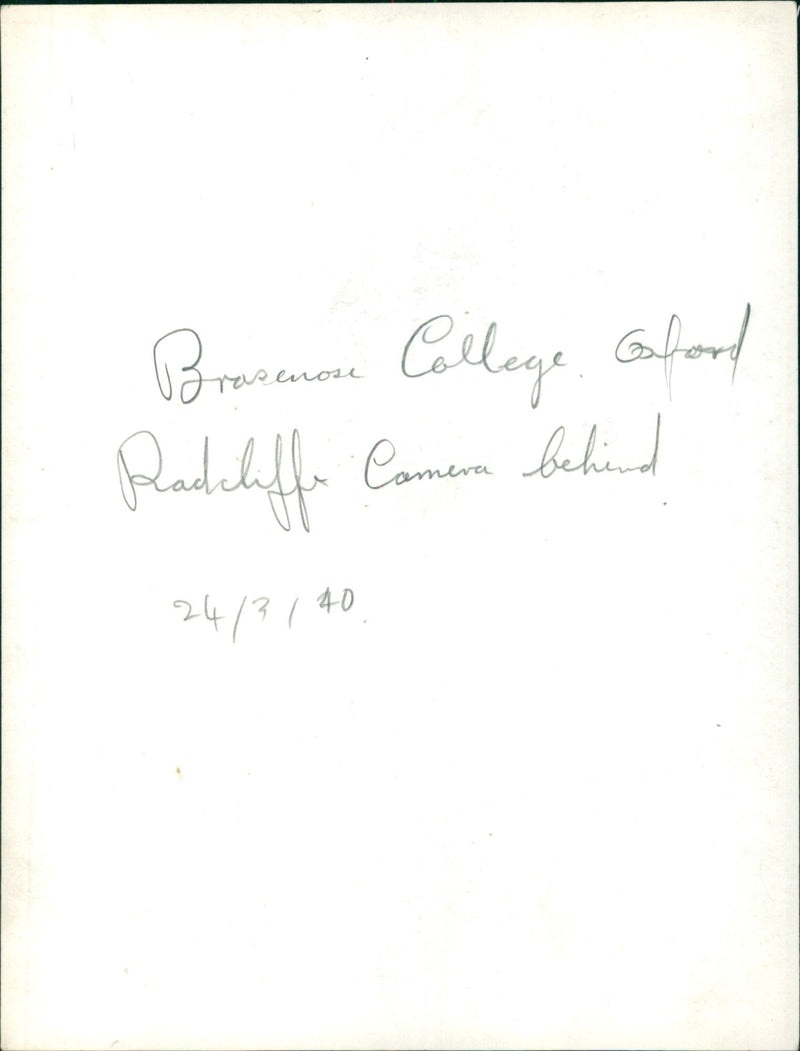 Brasenose College. Oxford
Radcliffe Camera behind.
24/3/40.